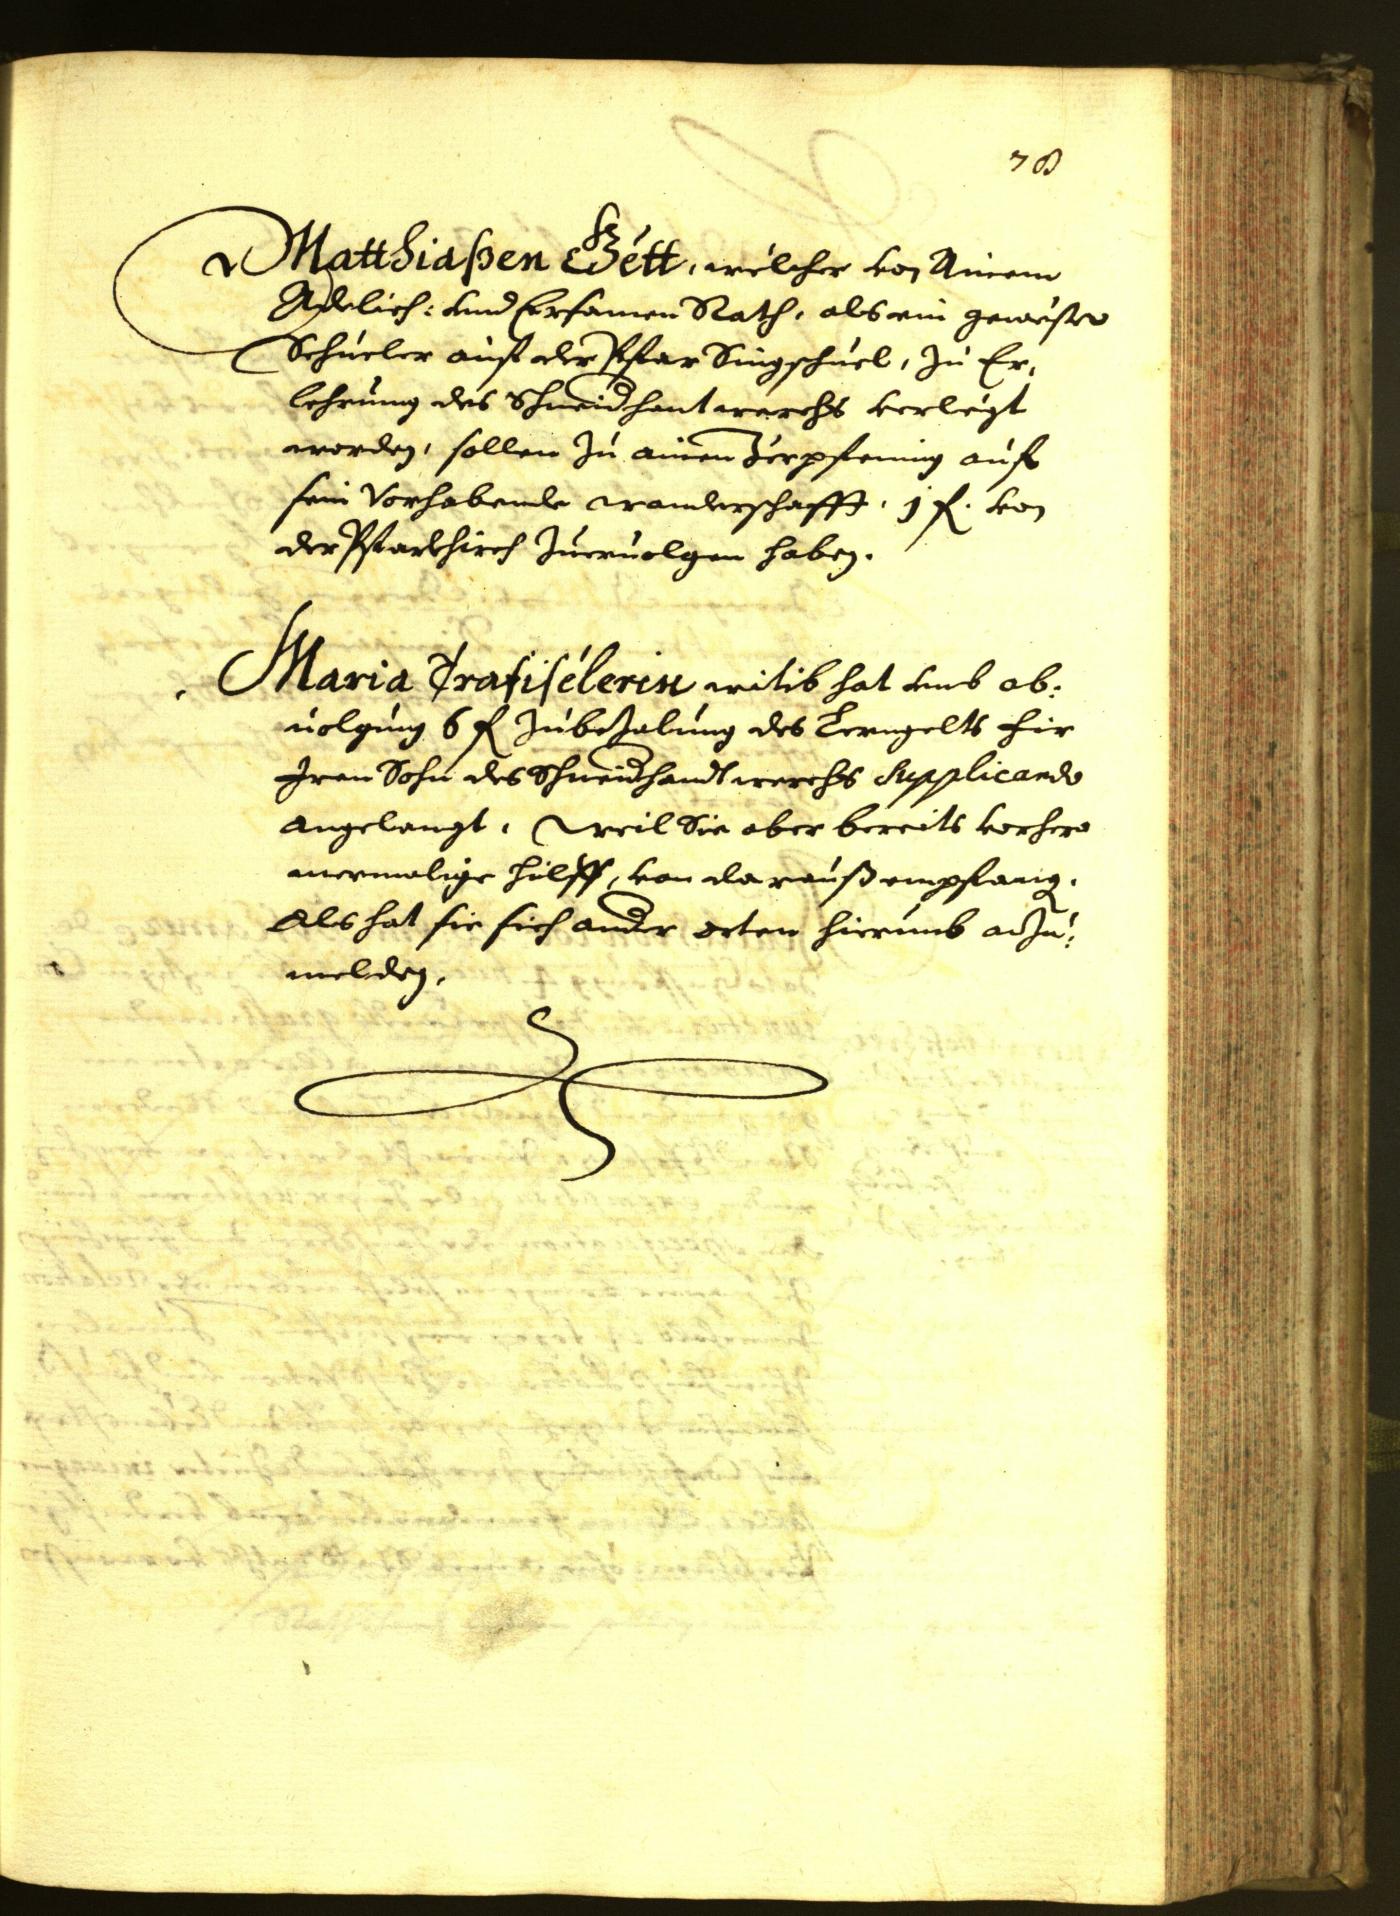 78
Matthiaßen Gött, welcher von Ainem
Adelich: vnd Ersamen Rath, als ein gewester
Schueler auß der Pfar Singschuel, zu Er,
lehrnung des Schneidhantwerchs verlegt
worden, sollen zu ainen Zerpfening auf
sein Vorhabende wanderschafft, 1 fl. von
der Pfarrkhirch zueruolgen haben.
Maria witib hat vmb ab:
uolgung 6 fl zubezalung des Lerngelts fir
Iren Sohn des Schneidhandtwerchs Supplicando
angelangt, weil Sie aber bereits vorhero
mermalige hilff, von darauß empfang.
Als hat sie sich ander orten hierumb anzu:
melden.